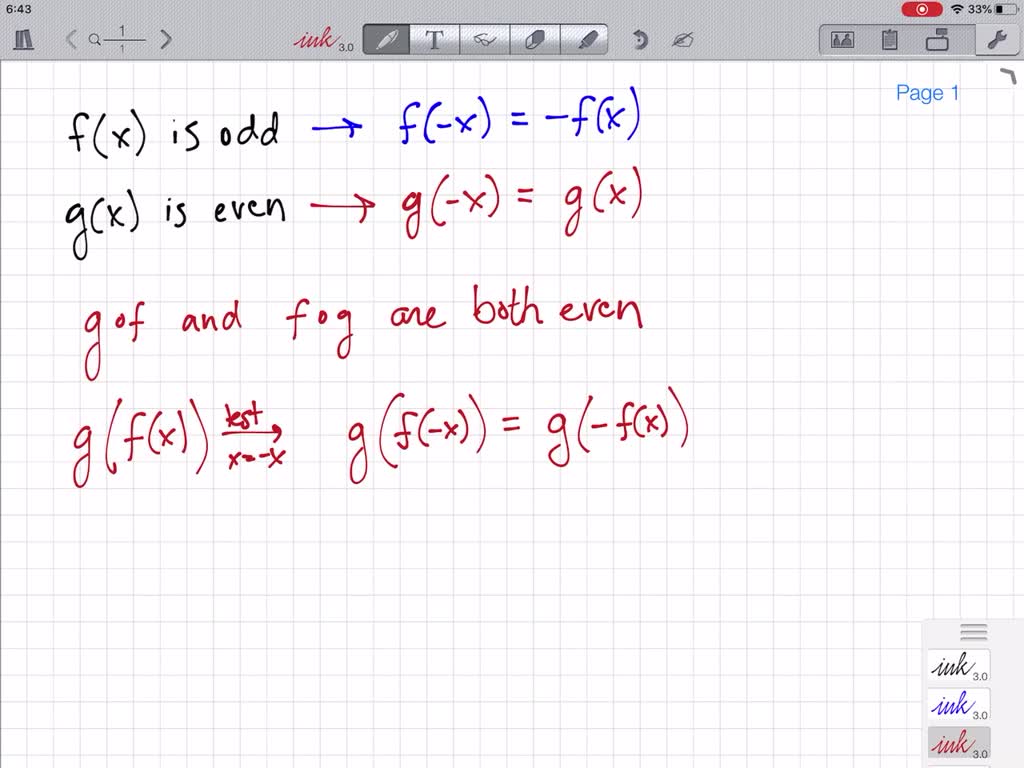 6:43
33%
1
1
ink 3.0
T
Page 1
f(x) is odd → f(-x) = -f(x)
g(x) is even → g(-x) = g(x)
g∘f and f∘g are both even
g(f(x)) test x=-x → g(f(-x)) = g(-f(x))
ink 3.0
ink 3.0
ink 3.0